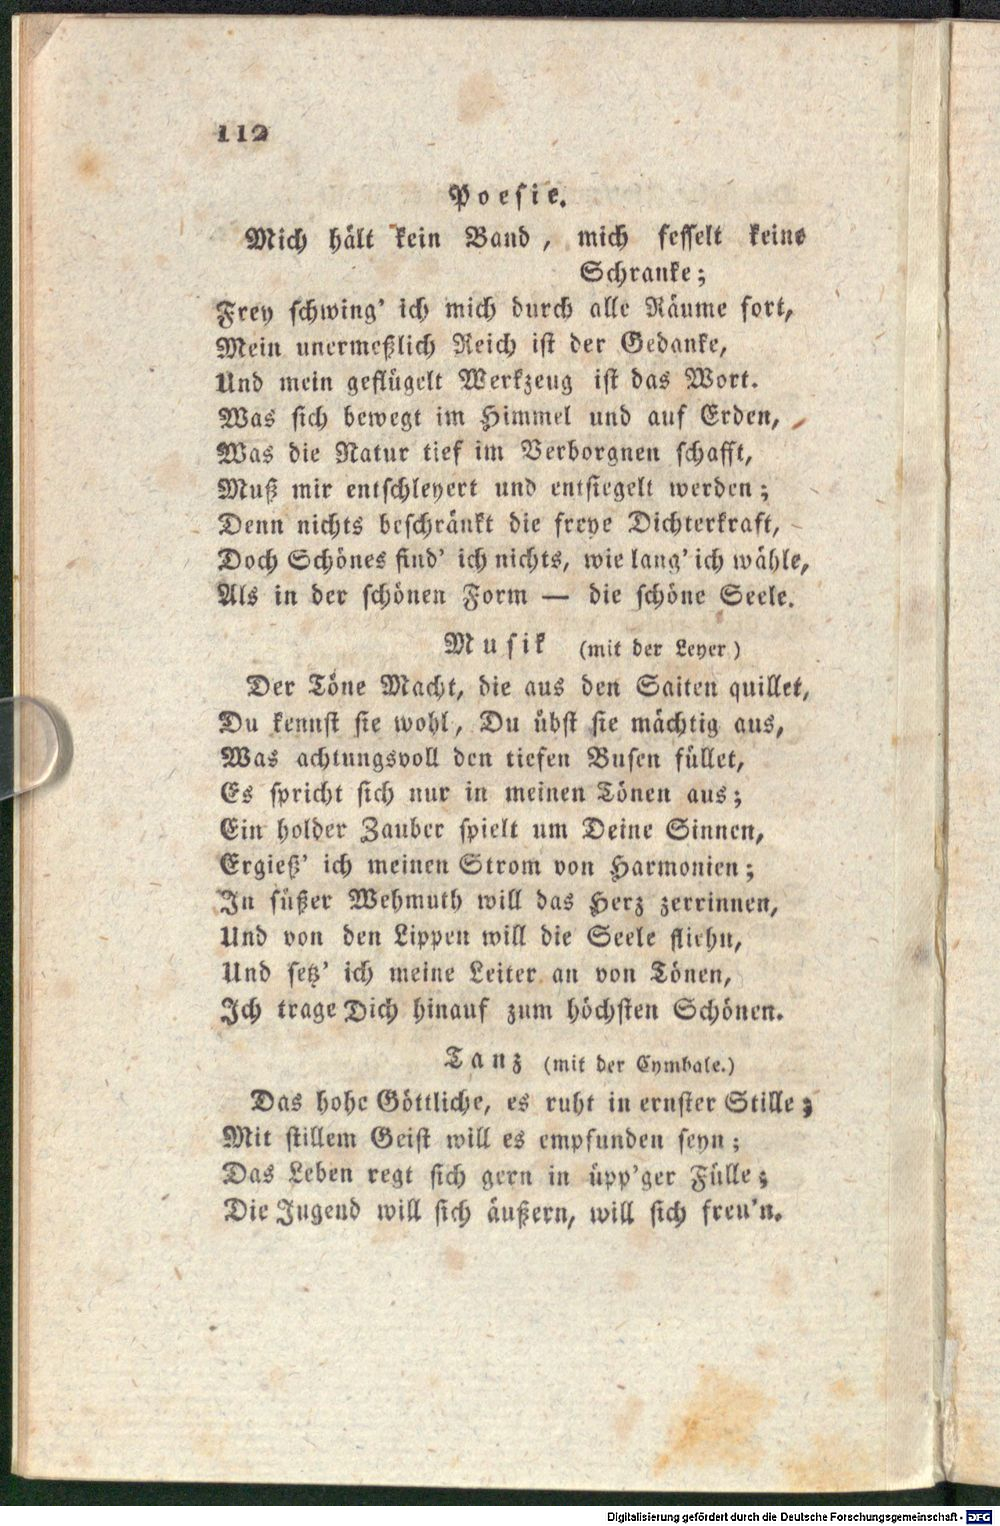 112
Poesie.
Mich hält kein Band, mich fesselt keine
Schranke;
Frey schwing' ich mich durch alle Räume fort,
Mein unermeßlich Reich ist der Gedanke,
Und mein geflügelt Werkzeug ist das Wort.
Was sich bewegt im Himmel und auf Erden,
Was die Natur tief im Verborgnen schafft,
Muß mir entschleyert und entsiegelt werden;
Denn nichts beschränkt die freye Dichterkraft,
Doch Schönes find' ich nichts, wie lang' ich wähle,
Als in der schönen Form — die schöne Seele.
Musik (mit der Leyer)
Der Töne Macht, die aus den Saiten quillet,
Du kennst sie wohl, Du übst sie mächtig aus,
Was achtungsvoll den tiefen Busen füllet,
Es spricht sich nur in meinen Tönen aus;
Ein holder Zauber spielt um Deine Sinnen,
Ergieß' ich meinen Strom von Harmonien;
In süßer Wehmuth will das Herz zerrinnen,
Und von den Lippen will die Seele fliehn,
Und setz' ich meine Leiter an von Tönen,
Ich trage Dich hinauf zum höchsten Schönen.
Tanz (mit der Cymbale.)
Das hohe Göttliche, es ruht in ernster Stille;
Mit stillem Geist will es empfunden seyn;
Das Leben regt sich gern in üpp'ger Fülle;
Die Jugend will sich äußern, will sich freu'n.
Digitalisierung gefördert durch die Deutsche Forschungsgemeinschaft - DFG